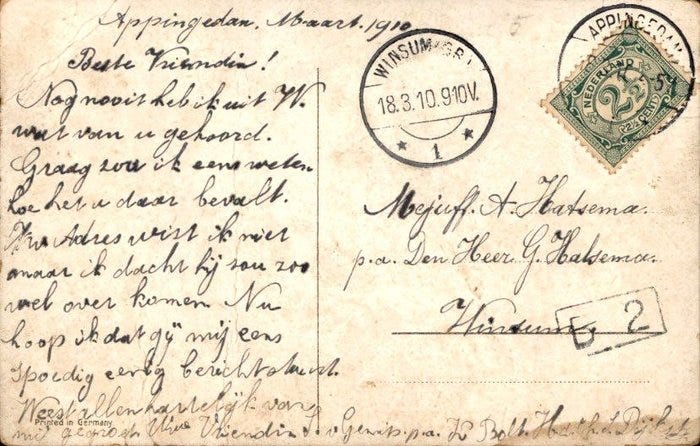 Appingedam, Maart. 1910
Beste Vriendin!
Nog nooit heb ik uit W.
wat van u gehoord.
Graag zou ik eens weten
hoe het u daar bevalt.
Uw Adres wist ik niet
maar ik dacht hij zou zoo
wel over komen. Nu
hoop ik dat gij mij eens
spoedig eenig bericht stuurt.
Weest allen hartelijk van
mij gegroet Uwe Vriendin
p.a. K Bolt.
Printed in Germany
WINSUM (GR.)
18.3.10.9-10V.
* 1 *
APPINGEDAM
NEDERLAND
2½
Mejuff. A. Hatsema.
p.a. Den Heer G. Halsema.
Winsum.
2